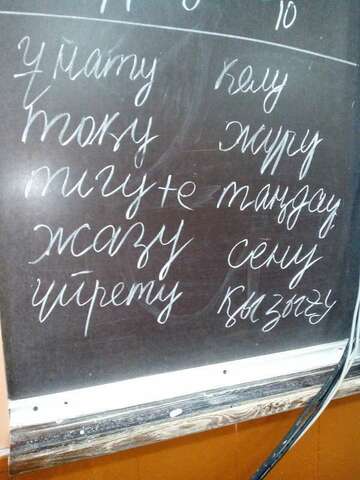 10
Ұнату келу
тоқу жүру
тігу+е таңдау
жазу сену
үйрету қызығу